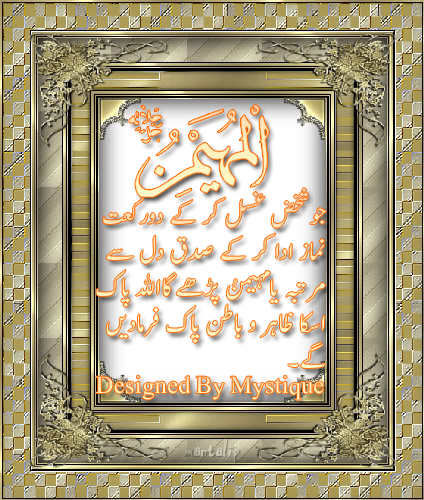 اَلْمُهَيْمِنُ
جو شخص غسل کر کے دو رکعت
نماز ادا کر کے صدق دل سے
مرتبہ یا مہیمن پڑھے گا اللہ پاک
اسکا ظاہر و باطن پاک فرما دیں
گے۔
Designed By Mystique